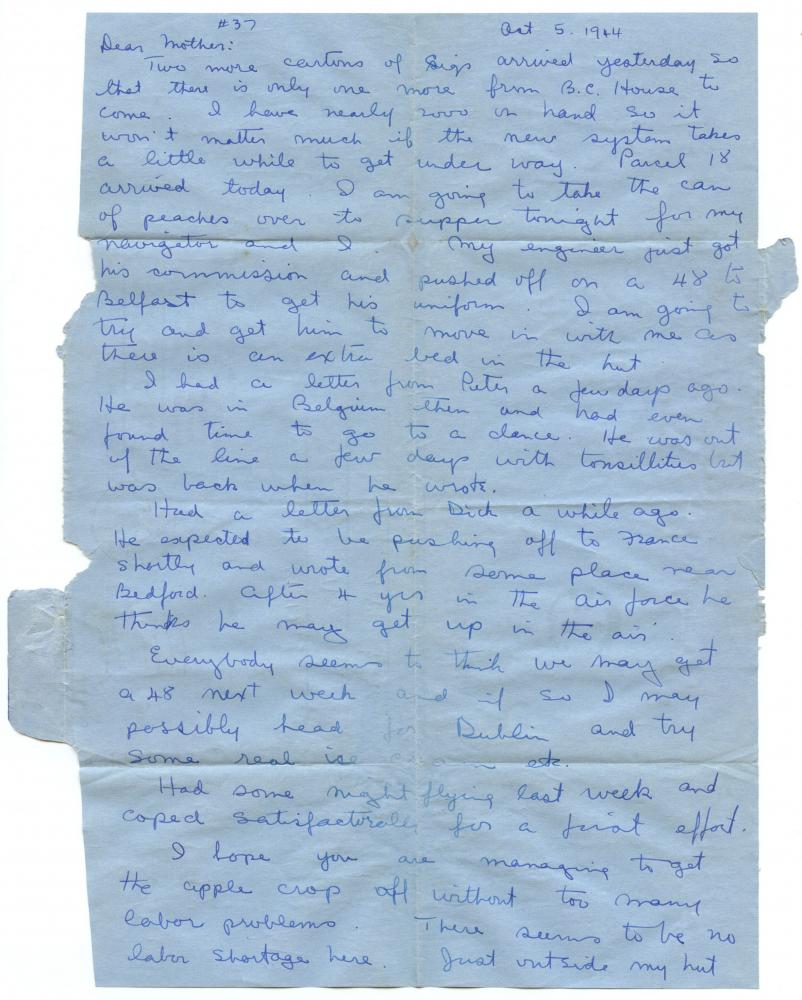 #37 Oct 5. 1944
Dear Mother:
Two more cartons of Sigs arrived yesterday so
that there is only one more from B.C. House to
come. I have nearly 2000 on hand so it
won't matter much if the new system takes
a little while to get under way. Parcel 18
arrived today. I am going to take the can
of peaches over to supper tonight for my
navigator and I. My engineer just got
his commission and pushed off on a 48 to
Belfast to get his uniform. I am going to
try and get him to move in with me as
there is an extra bed in the hut.
I had a letter from Peter a few days ago.
He was in Belgium then and had even
found time to go to a dance. He was out
of the line a few days with tonsillities but
was back when he wrote.
Had a letter from Dick a while ago.
He expected to be pushing off to France
shortly and wrote from some place near
Bedford. After 4 yrs in the air force he
thinks he may get up in the air.
Everybody seems to think we may get
a 48 next week and if so I may
possibly head for Dublin and try
some real ice cream etc.
Had some night flying last week and
coped satisfactorally for a first effort.
I hope you are managing to get
the apple crop off without too many
labor problems. There seems to be no
labor shortage here. Just outside my hut